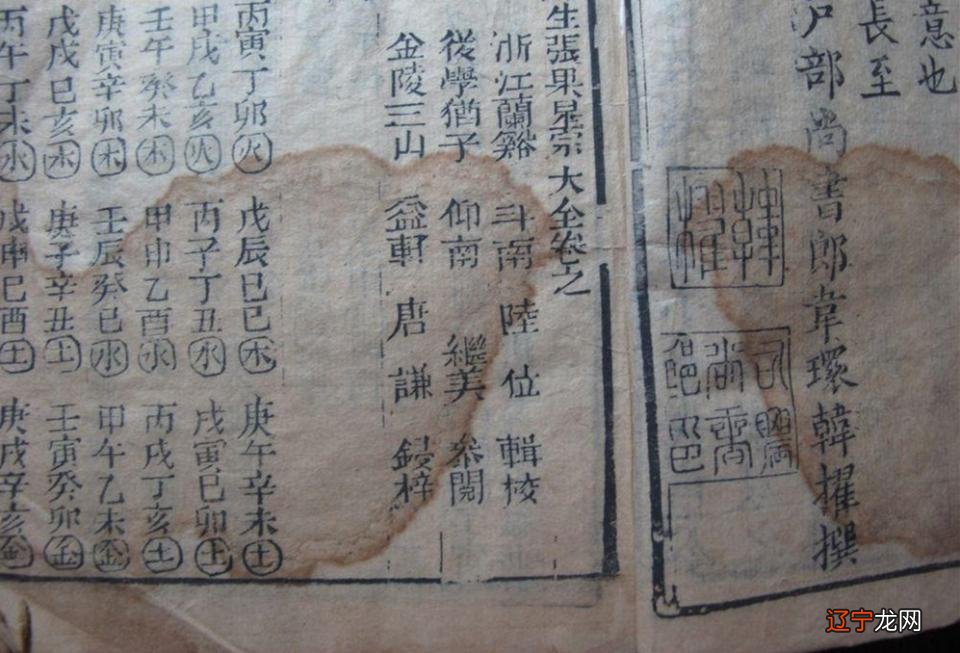 意也
長至
户部尚書郎韋環韓擢撰
韓擢
生張果星宗大全卷之
浙江蘭谿 斗南 陸 位 輯校
從學猶子 仰南 繼美 叅閱
金陵三山 益軒 唐 謙 鋟梓
丙寅丁卯火 戊辰巳巳木 庚午辛未土
甲戌乙亥火 丙子丁丑水 戊寅巳卯土
壬午癸未木 甲申乙酉水 丙戌丁亥土
庚寅辛卯木 壬辰癸巳水 甲午乙未金
戊戌巳亥木 庚子辛丑土 壬寅癸卯金
丙午丁未水 戊申巳酉土 庚戌辛亥金
辽宁龙网